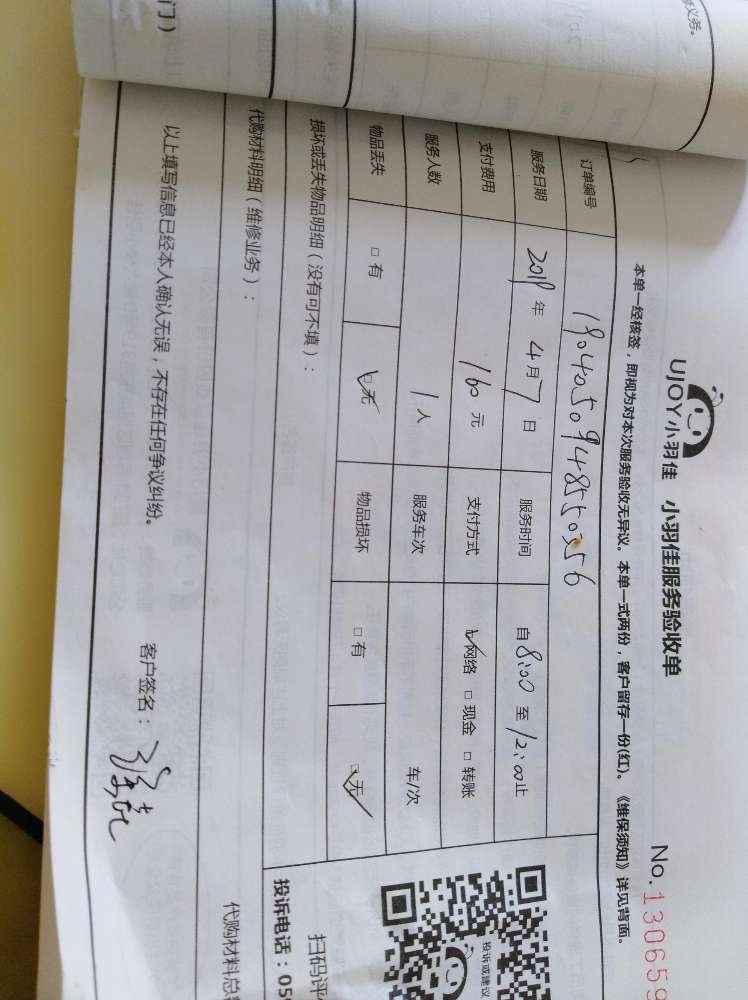 义务。
门）
UJOY小羽佳 小羽佳服务验收单
No.130659
本单一经核签，即视为对本次服务验收无异议。本单一式两份，客户留存一份(红)。《维保须知》详见背面。
订单编号 1904050948550356
服务日期 2019年4月7日 服务时间 自8:00至12:00止
支付费用 160元 支付方式 ☑网络 □现金 □转账
服务人数 1人 服务车次 车/次
物品丢失 □有 ☑无 物品损坏 □有 ☑无
损坏或丢失物品明细（没有可不填）：
代购材料明细（维修业务）：
以上填写信息已经本人确认无误，不存在任何争议纠纷。
客户签名：
投诉或建议
扫码评
投诉电话：059
代购材料总